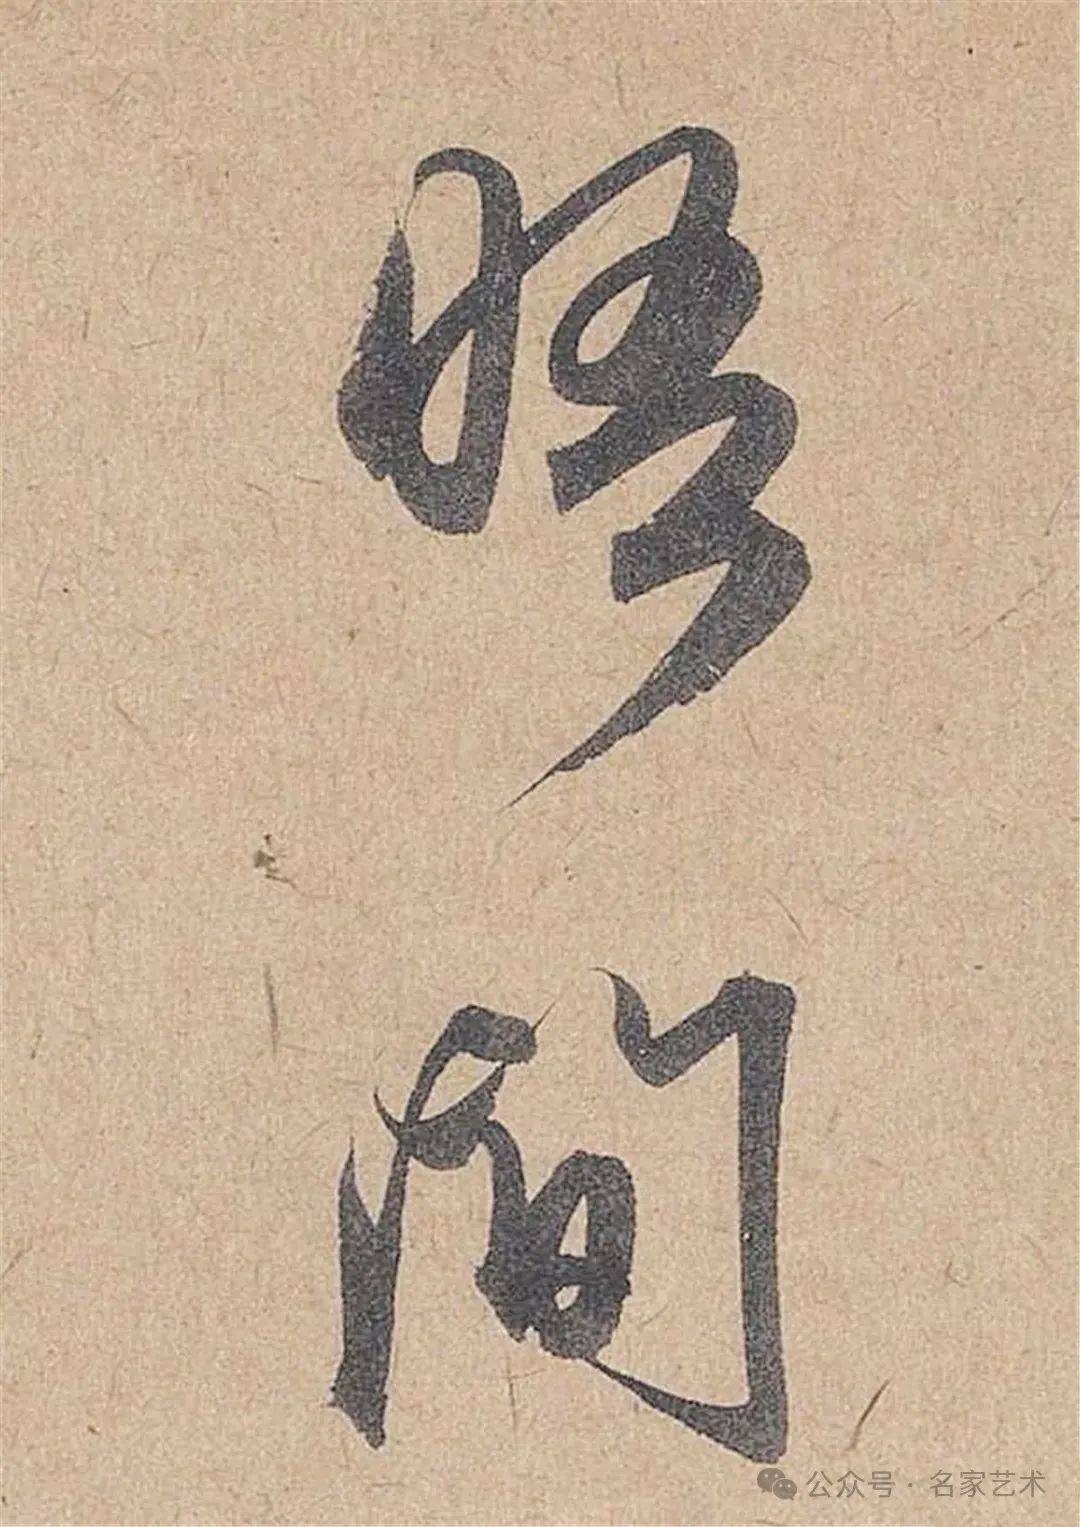 間
公众号·名家艺术